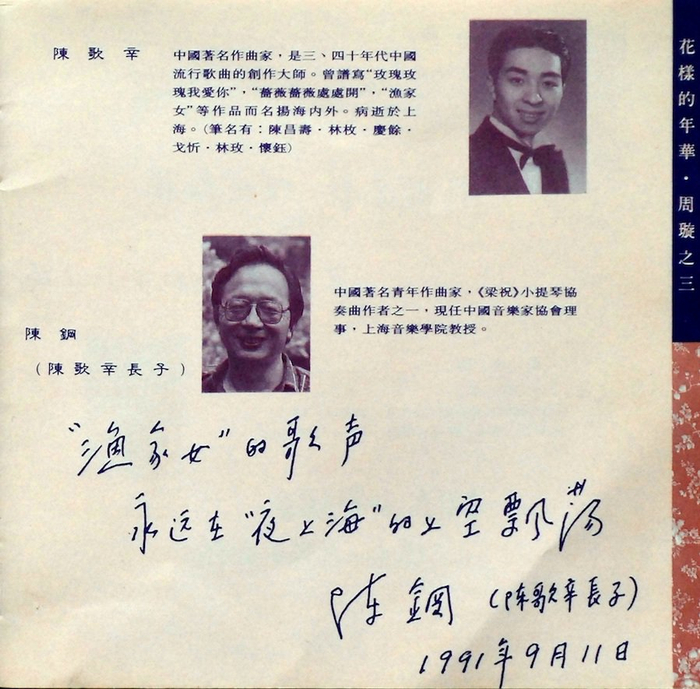 陳歌辛
中國著名作曲家，是三、四十年代中國
流行歌曲的創作大師。曾譜寫“玫瑰玫
瑰我愛你”，“薔薇薔薇處處開”，“漁家
女”等作品而名揚海内外。病逝於上
海。(筆名有：陳昌壽·林枚·慶餘·
戈忻·林玫·懷鈺)
陳鋼
(陳歌辛長子)
中國著名青年作曲家，《梁祝》小提琴協
奏曲作者之一，現任中國音樂家協會理
事，上海音樂學院教授。
“渔家女”的歌声
永远在“夜上海”的上空飘荡
陈鋼 (陈歌辛長子)
1991年9月11日
花樣的年華·周璇之三